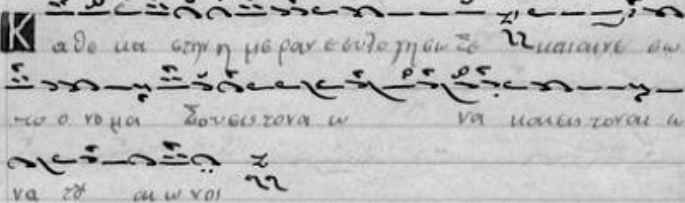 Κ αθε κα στην η με ραν ευλογησω σε και αινε σω
το ο νο μα σου εις τον α ω να και εις τον αι ω
να τȣ αι ω νος